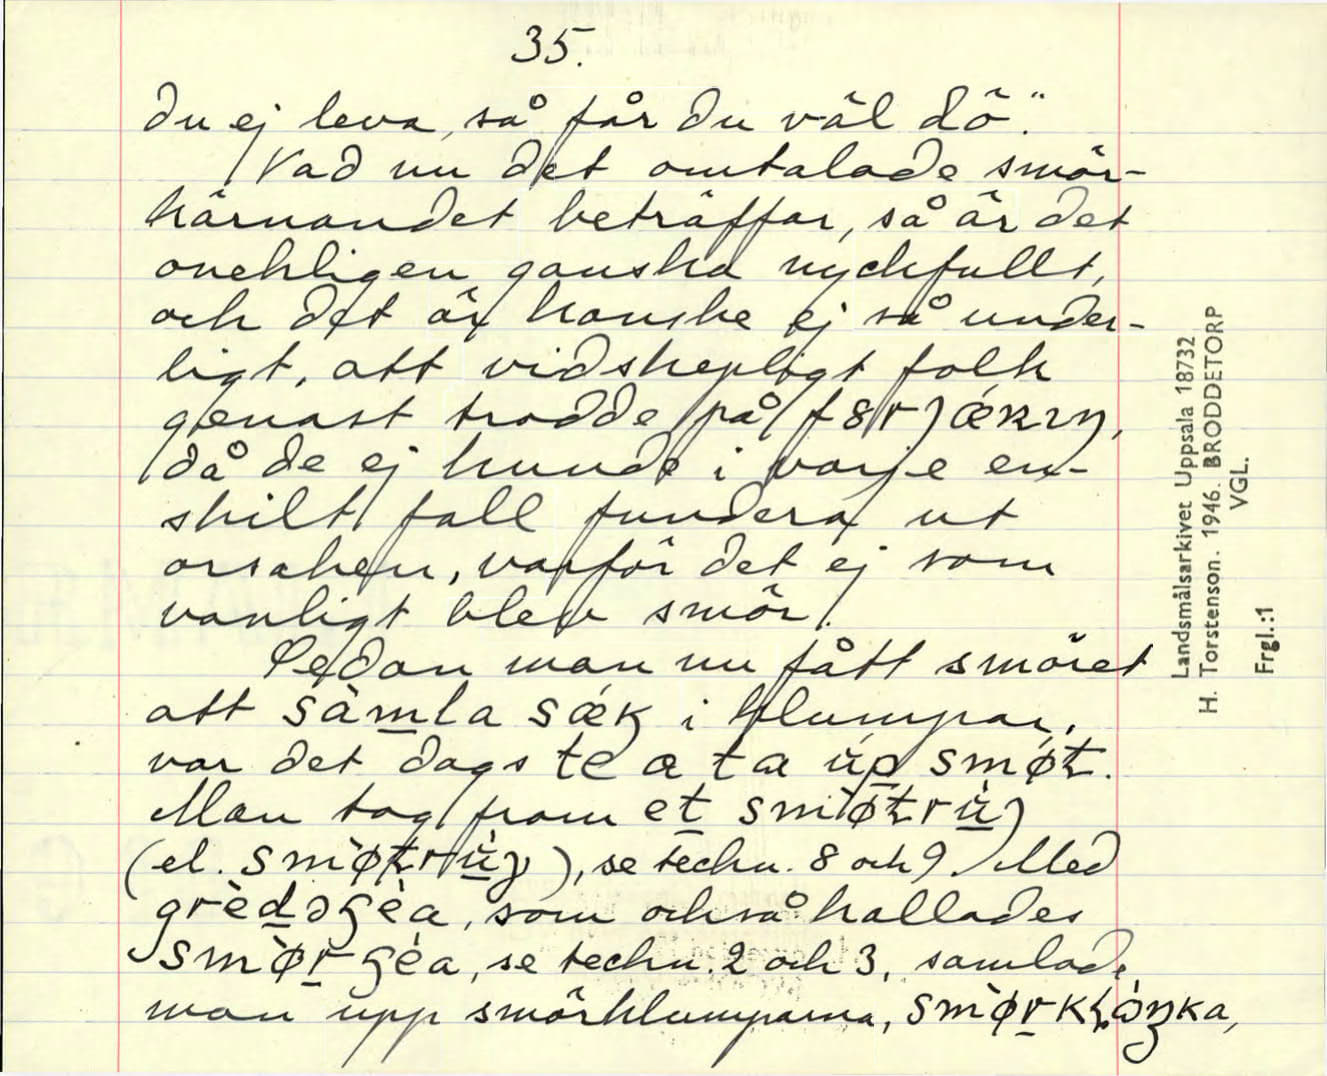 35.
du ej leva, så får du väl dö".
Vad nu det omtalade smör-
kärnandet beträffar, så är det
onekligen ganska nyckfullt,
och det är kanske ej så under-
ligt, att vidskepligt folk
genast trodde på
då de ej kunde i varje en-
skilt fall fundera ut
orsaken, varför det ej som
vanligt blev smör.
Sedan man nu fått smöret
att sàmla sǽk i klumpar,
var det dags te a ta úp smøt.
Man tog fram et
(el. ), se teckn. 8 och 9. Med
grèdəgèa, som också kallades
smør gèa, se teckn. 2 och 3, samlade
man upp smörklumparna,
Landsmålsarkivet Uppsala 18732
H. Torstenson. 1946. BRODDETORP
VGL.
Frgl.:1